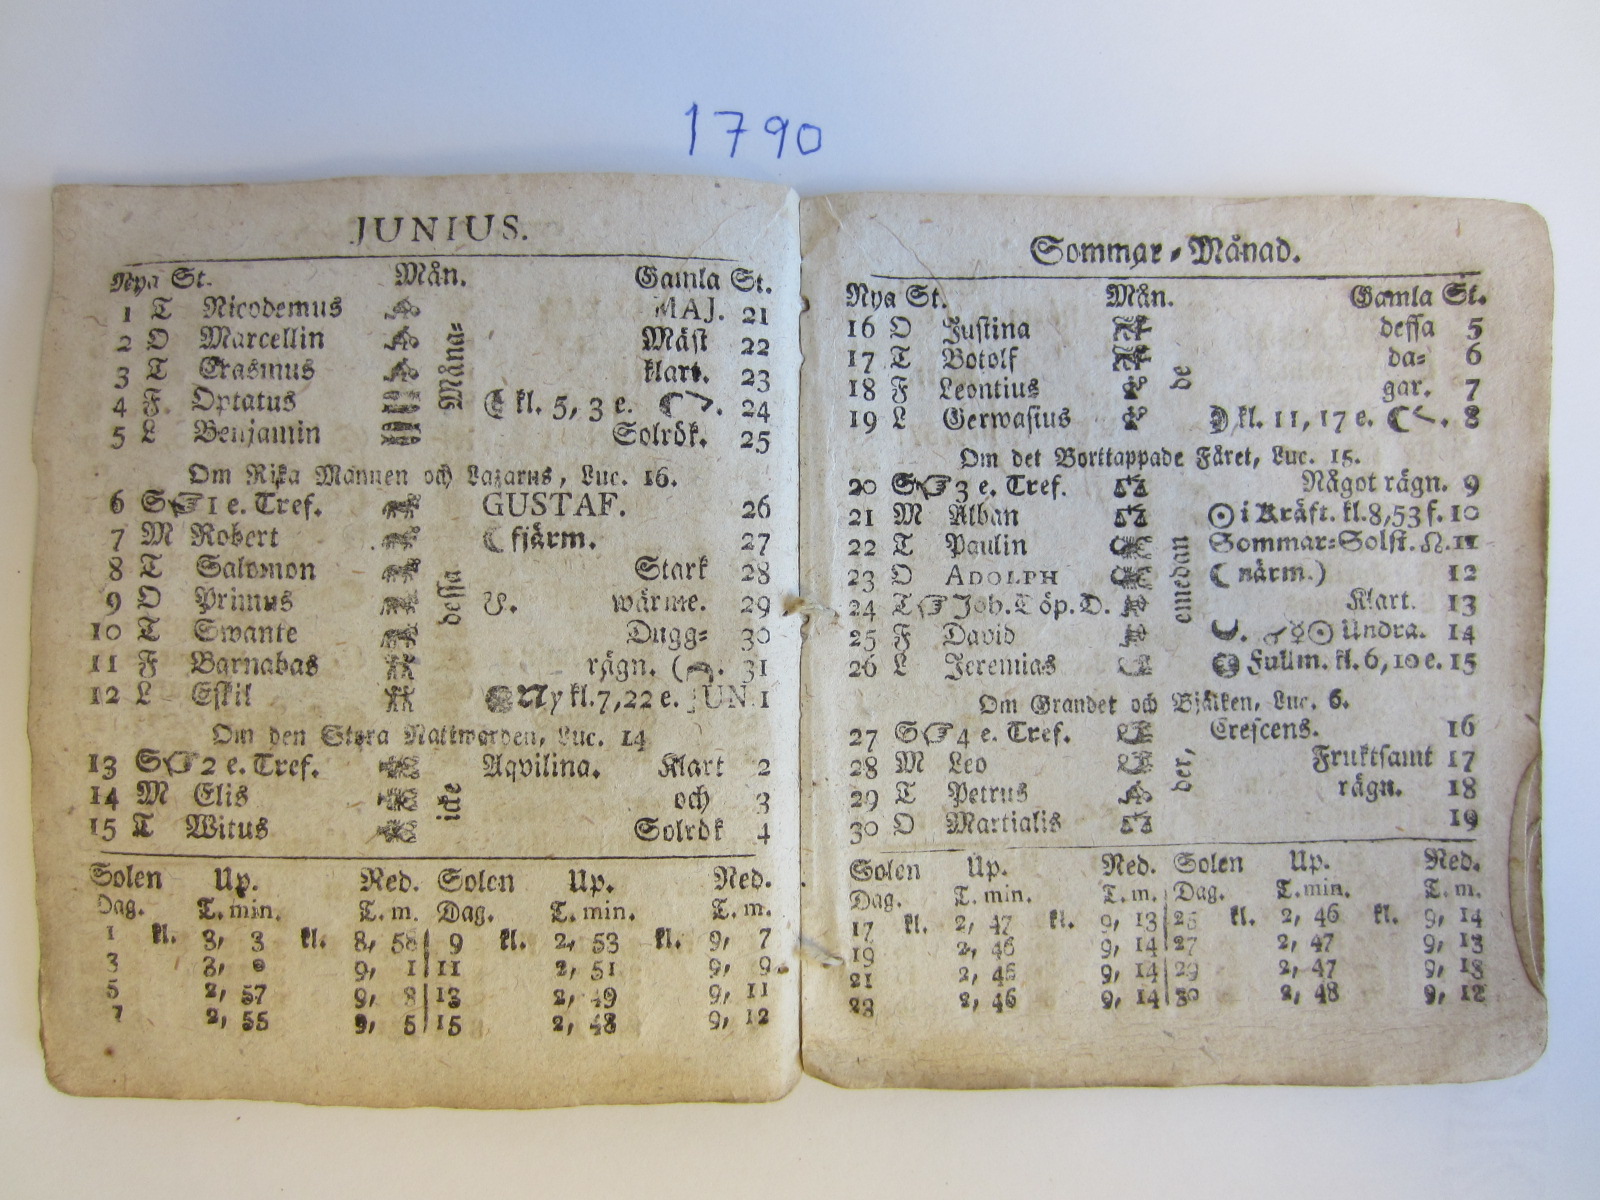 1790
JUNIUS.
Nya St. Mån. Gamla St.
1 T Nicodemus MAJ. 21
2 O Marcellin Mäst 22
3 T Erasmus klart. 23
4 F. Optatus kl. 5, 3 e. 24
5 L Benjamin Solrök. 25
Måna-
Om Rika Mannen och Lazarus, Luc. 16.
6 S ☞ 1 e. Tref. GUSTAF. 26
7 M Robert ☾ fjärm. 27
8 T Salomon Stark 28
9 O Primus ☋. wärme. 29
10 T Swante Dugg- 30
11 F Barnabas rägn. 31
12 L Eskil Ny kl. 7, 22 e. JUN. 1
dessa
Om den Stora Nattwarden, Luc. 14
13 S ☞ 2 e. Tref. Aqvilina. Klart 2
14 M Elis och 3
15 T Witus Solrök 4
icke
Solen Up. Ned. Solen Up. Ned.
Dag. T. min. T. m. Dag. T. min. T. m.
1 kl. 3, 3 kl. 8, 58 9 kl. 2, 53 kl. 9, 7
3 3, 0 9, 1 11 2, 51 9, 9
5 2, 57 9, 3 13 2, 49 9, 11
7 2, 55 9, 5 15 2, 48 9, 12
Sommar-Månad.
Nya St. Mån. Gamla St.
16 O Justina dessa 5
17 T Botolf da- 6
18 F Leontius gar. 7
19 L Gerwasius kl. 11, 17 e. 8
de
Om det Borttappade Fåret, Luc. 15.
20 S ☞ 3 e. Tref. Något rägn. 9
21 M Alban ☉ i Kräft. kl. 8, 53 f. 10
22 T Paulin Sommar-Solst. ☊. 11
23 O ADOLPH ☾ närm.) 12
24 T ☞ Joh. Döp. D. Klart. 13
25 F David ☌ ☿ ☉ Undra. 14
26 L Jeremias Fullm. kl. 6, 10 e. 15
emedan
Om Grandet och Bjälken, Luc. 6.
27 S ☞ 4 e. Tref. Crescens. 16
28 M Leo Fruktsamt 17
29 T Petrus rägn. 18
30 O Martialis 19
der,
Solen Up. Ned. Solen Up. Ned.
Dag. T. min. T. m. Dag. T. min. T. m.
17 kl. 2, 47 kl. 9, 13 25 kl. 2, 46 kl. 9, 14
19 2, 46 9, 14 27 2, 47 9, 13
21 2, 46 9, 14 29 2, 47 9, 13
23 2, 46 9, 14 30 2, 48 9, 12